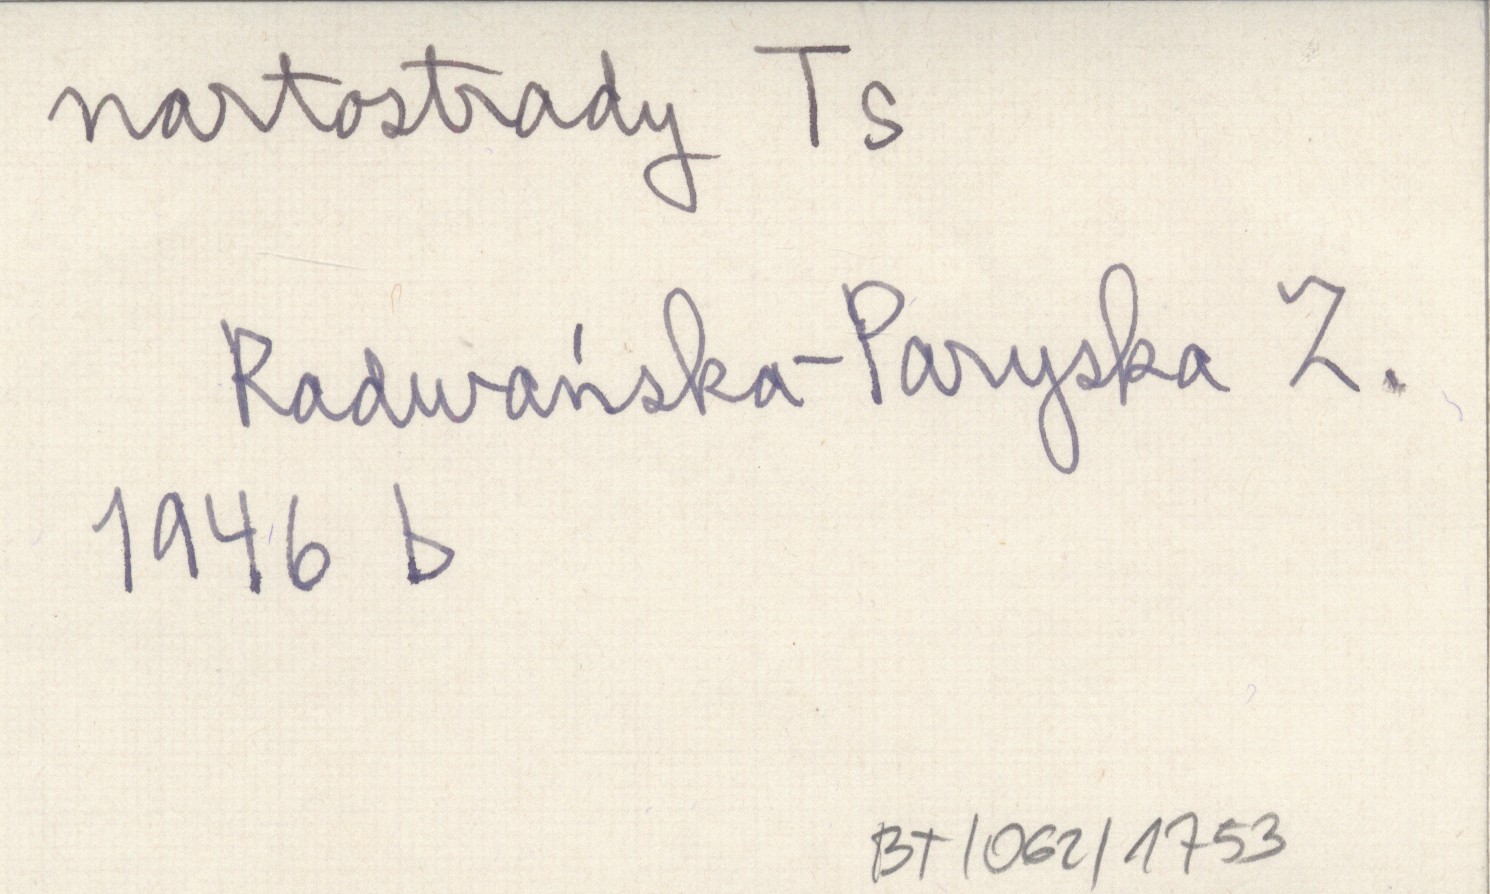 nartostrady Ts
Radwańska-Paryska Z.
1946 b
BT/062/1753